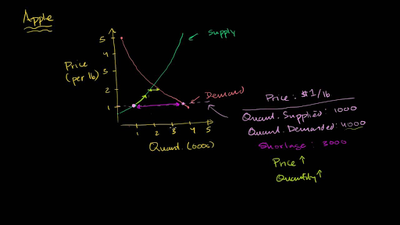 Apple
5
4
3
2
1
Price
(per lb)
Supply
Demand
1 2 3 4 5
Quant. (000s)
Price: $1/lb
Quant. Supplied: 1000
Quant. Demanded: 4000
Shortage: 3000
Price ↑
Quantity ↑